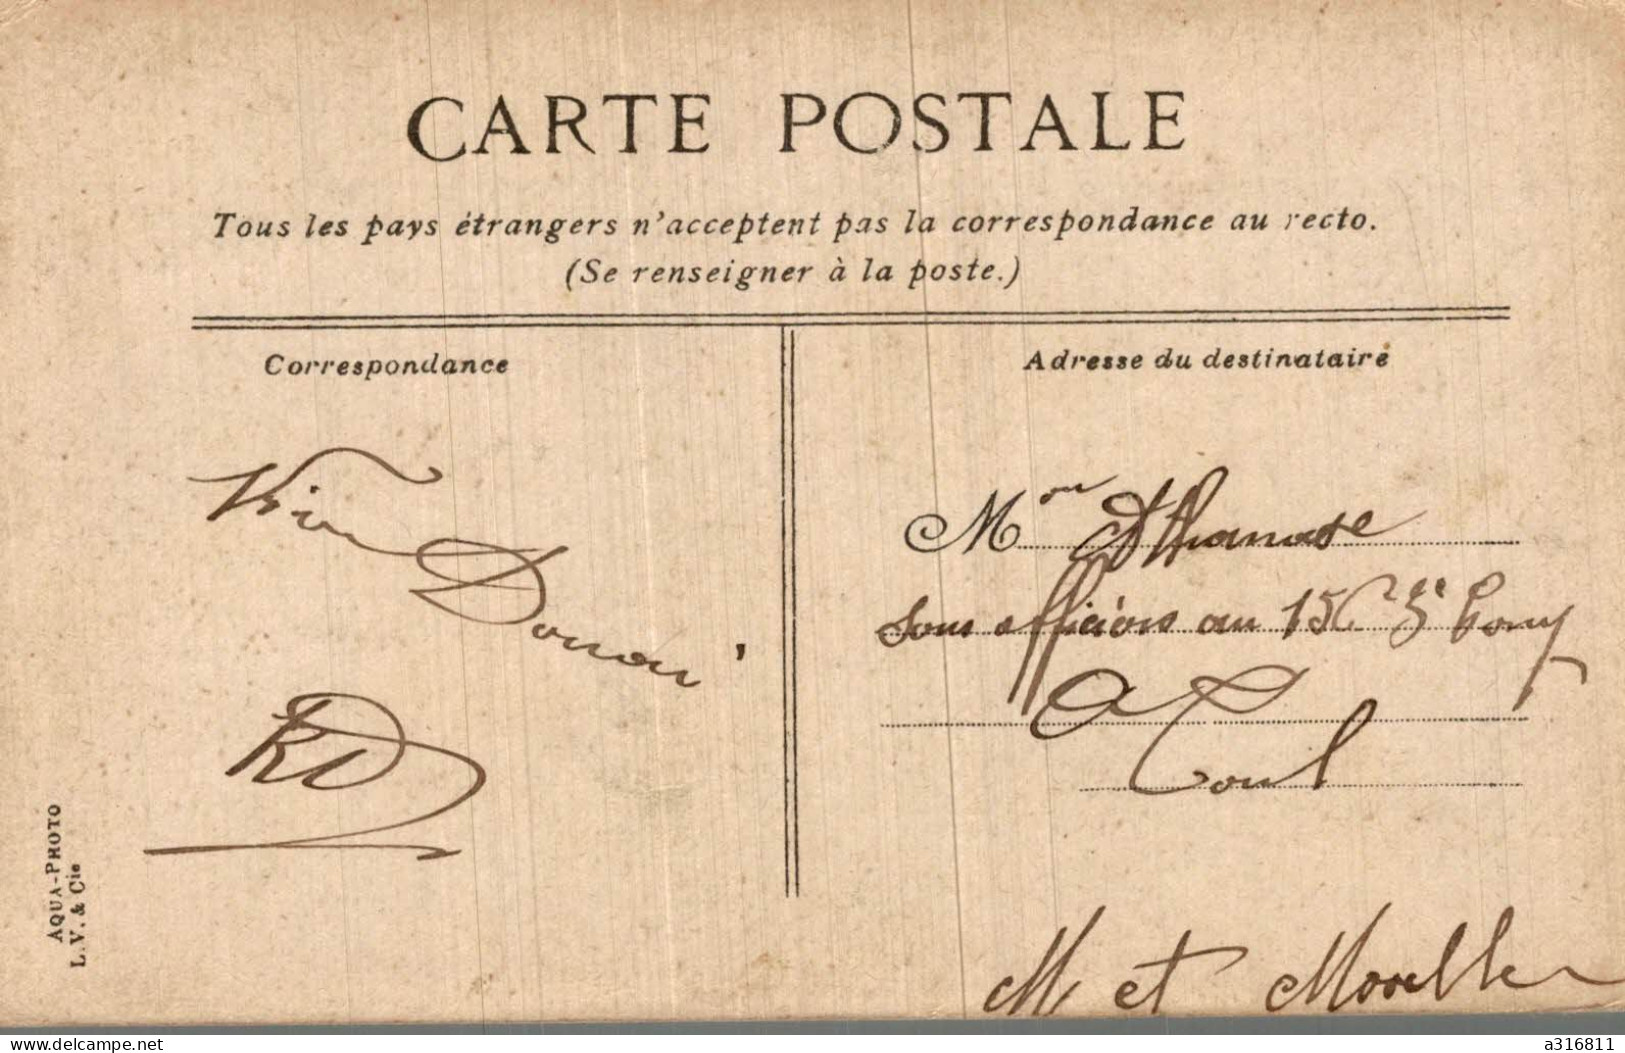 CARTE POSTALE
Tous les pays étrangers n'acceptent pas la correspondance au recto.
(Se renseigner à la poste.)
Correspondance
Adresse du destinataire
Douai
RD
Mon Athanase
sous officiers au 156 Comp
A
Toul
M et Moselle
AQUA-PHOTO
L.V. & Cie
www.delcampe.net
a316811